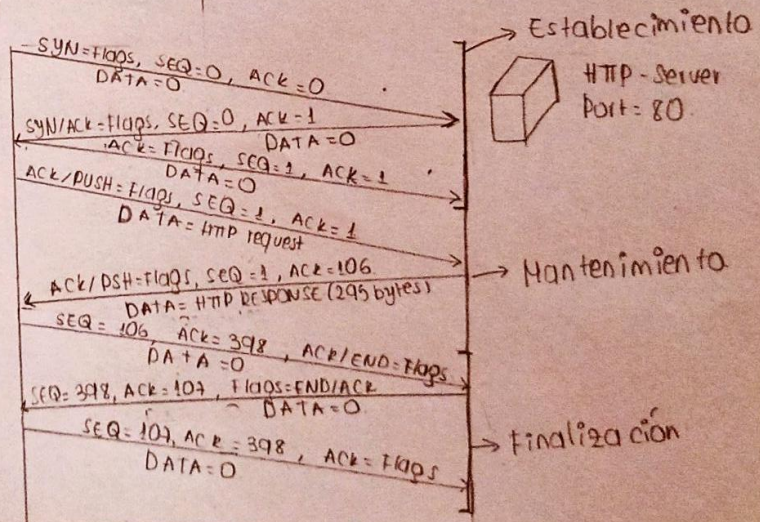 Establecimiento
HTTP-Server
Port=80
SYN=Flags, SEQ=0, ACK=0
DATA=0
SYN/ACK=Flags, SEQ=0, ACK=1
DATA=0
ACK=Flags, SEQ=1, ACK=1
DATA=0
ACK/PUSH=Flags, SEQ=1, ACK=1
DATA=HTTP request
Mantenimiento
ACK/PSH=Flags, SEQ=1, ACK=106
DATA=HTTP RESPONSE (295 bytes)
SEQ=106, ACK=398, ACK/END=Flags
DATA=0
SEQ=398, ACK=107, Flags=END/ACK
DATA=0
SEQ=107, ACK=398, ACK=Flags
DATA=0
Finalización